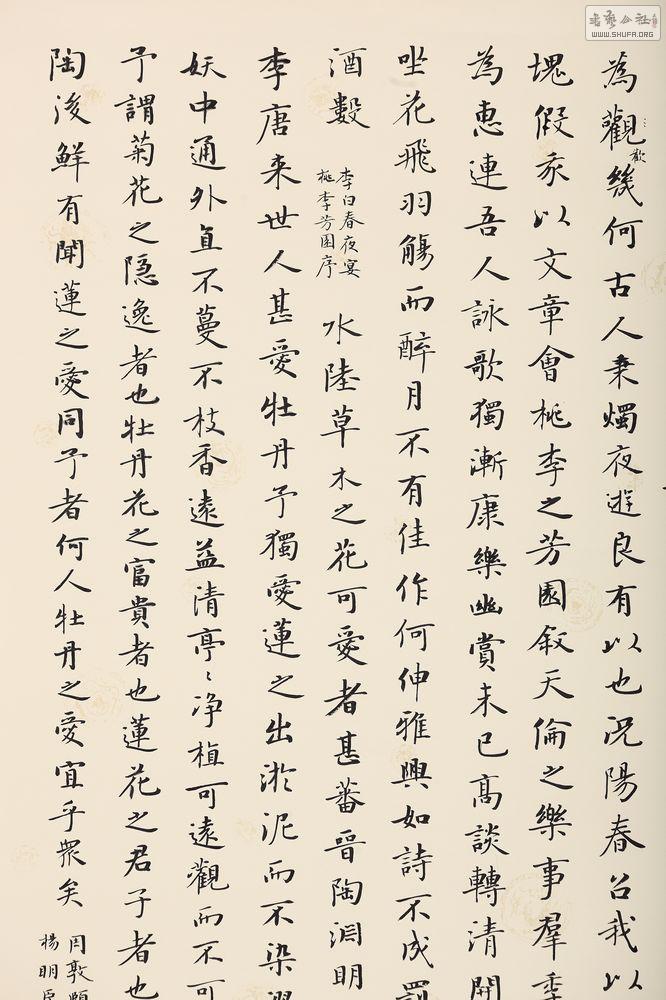 為觀幾何古人秉燭夜遊良有以也況陽春召我以
歡
塊假我以文章會桃李之芳園叙天倫之樂事羣季
為惠連吾人詠歌獨漸康樂幽賞未已高談轉清開
坐花飛羽觴而醉月不有佳作何伸雅興如詩不成罰
酒數
李白春夜宴
桃李芳園序
水陸草木之花可愛者甚蕃晉陶淵明
李唐来世人甚愛牡丹予獨愛蓮之出淤泥而不染濯
妖中通外直不蔓不枝香遠益清亭〻净植可遠觀而不可
予謂菊花之隐逸者也牡丹花之富貴者也蓮花之君子者也
陶後鮮有聞蓮之愛同予者何人牡丹之愛宜乎眾矣
周敦頤
楊明臣
書藝公社
WWW.SHUFA.ORG